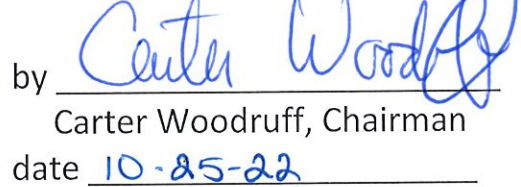 by Carter Woodruff
Carter Woodruff, Chairman
date 10-25-22